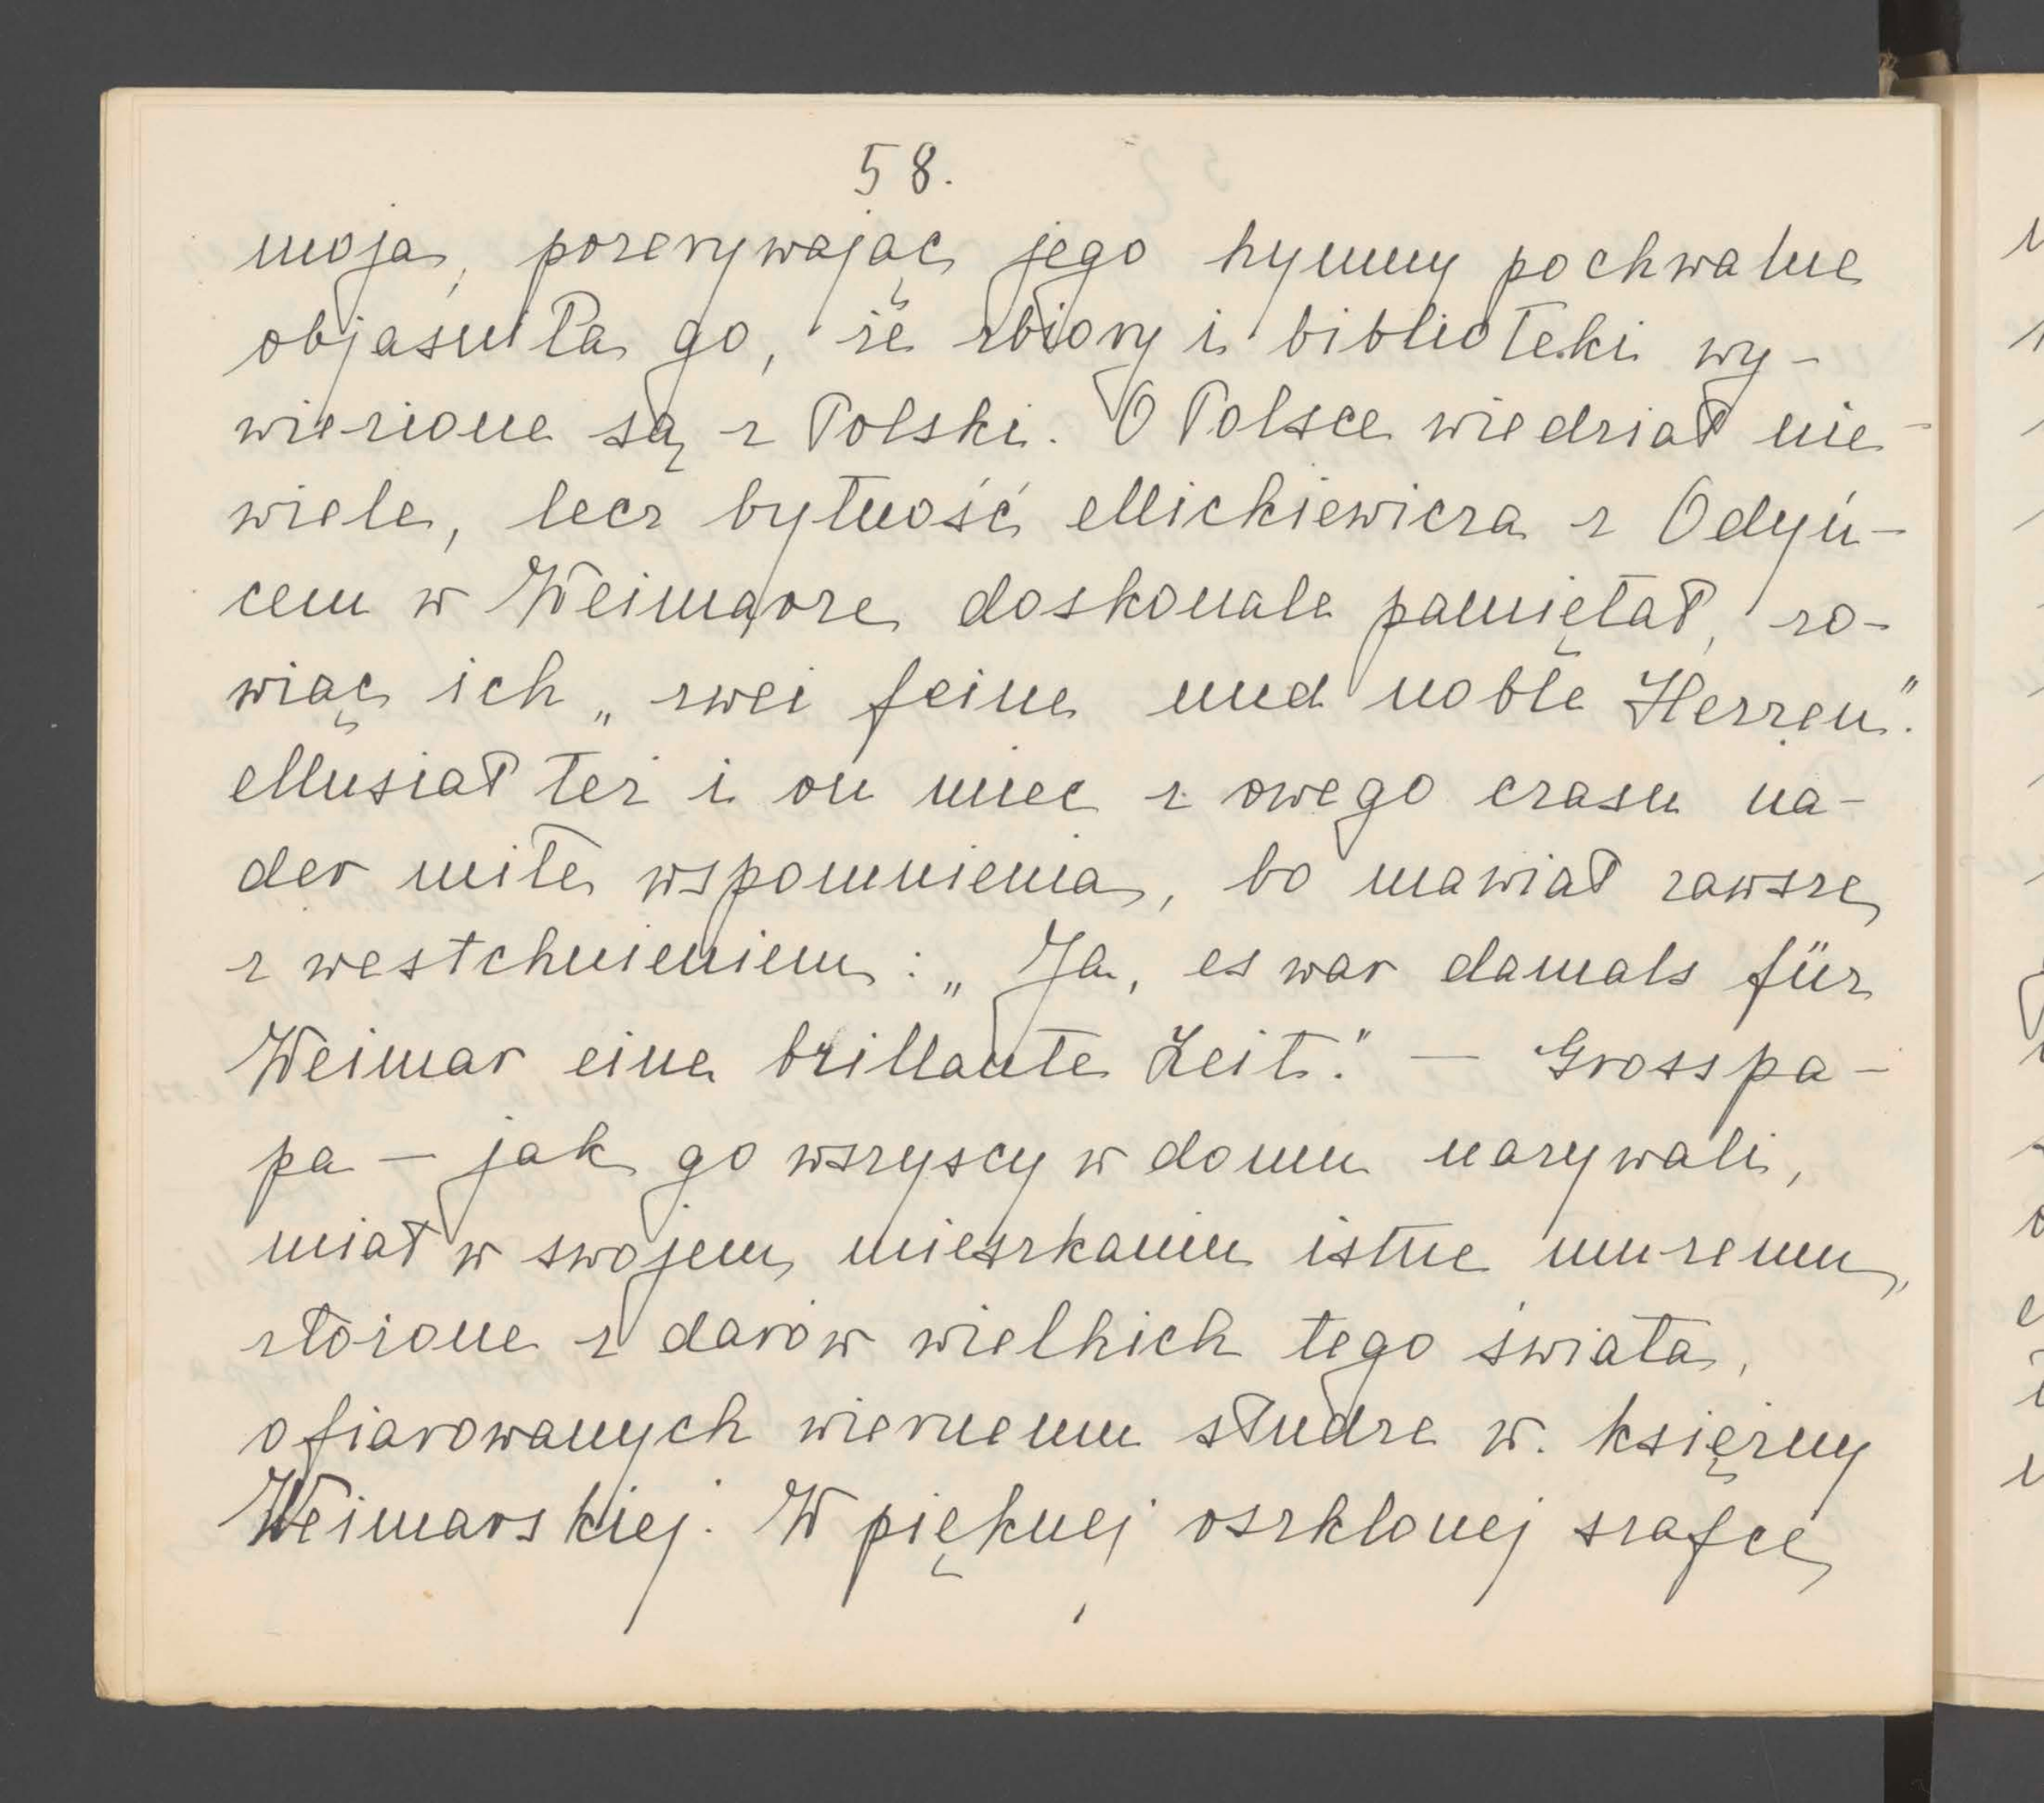 58.
moja, przerywając jego hymny pochwalne
objaśniła go, że zbiory i biblioteki wy-
wiezione są z Polski. O Polsce wiedział nie-
wiele, lecz bytność Mickiewicza z Odyń-
cem w Weimarze doskonale pamiętał, zo-
wiąc ich „zwei feine und noble Herren".
Musiał też i on mieć z owego czasu na-
der miłe wspomnienia, bo mawiał zawsze
z westchnieniem: „Ja, es war damals für
Weimar eine brillante Zeit." — Grosspa-
pa — jak go wszyscy w domu nazywali,
miał w swojem mieszkaniu istne muzeum,
złożone z darów wielkich tego świata,
ofiarowanych wiernemu słudze w. księżny
Weimarskiej. W pięknej oszklonej szafce